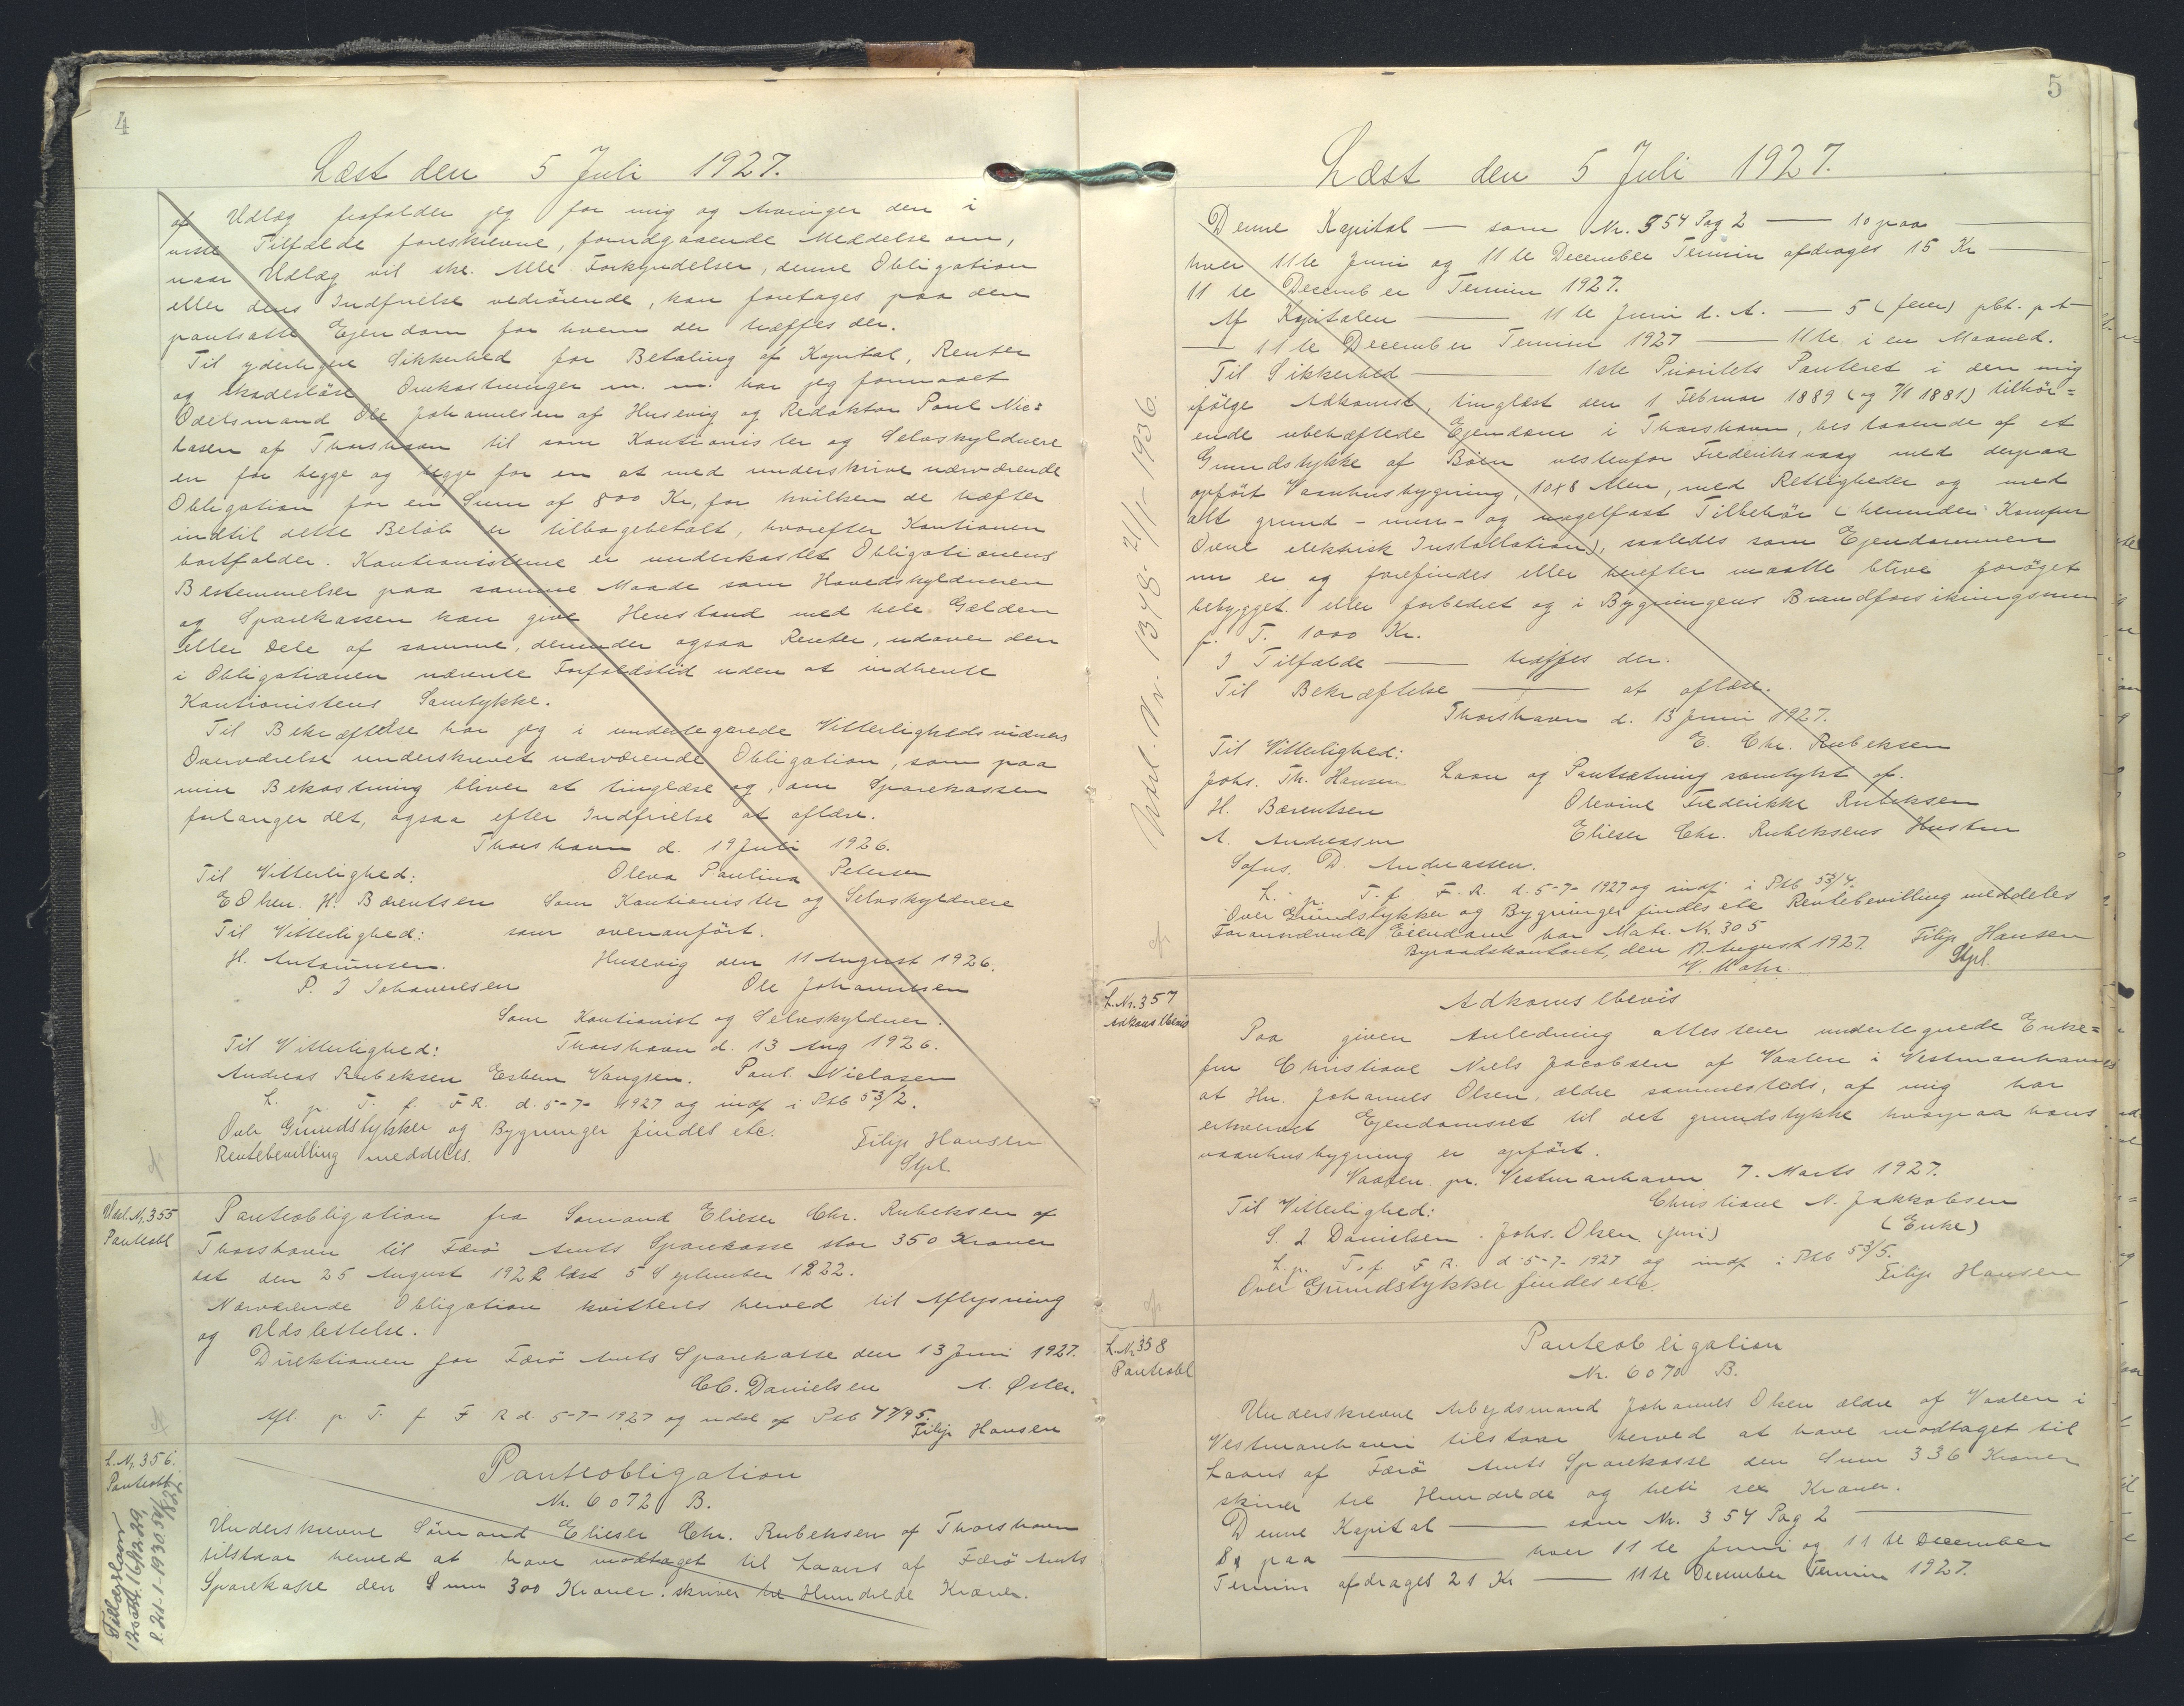 4
Læst den 5 Juli 1927.
af Udlæg frafalder jeg for mig og Arvinger den i
visse Tilfælde foreskrevne, forudgaaende Meddelse om,
naar Udlæg vil ske. Alle Forkyndelser, denne Obligation
eller dens Indfrielse vedrörende, kan foretages paa den
pantsatte Ejendom for hvem der træffes der.
Til yderligere Sikkerhed for Betaling af Kapital, Renter
og skadeslöse Omkostninger m. m. har jeg formaaet
Odelsmand Ole Johannesen af Husevig og Redaktor Poul Nic=
lasen af Thorshavn til som Kautionister og Selvskyldnere
en for begge og begge for en at med underskrive nærværende
Obligation for en Sum af 800 Kr, for hvilken de hæfter
indtil dette Belöb er tilbagebetalt, hvorefter Kautionen
bortfalder. Kautionisterne er underkastet Obligationens
Bestemmelser paa samme Maade som Hovedskyldneren
og Sparekassen kan give Henstand med hele Gælden
eller Dele af samme, derunder ogsaa Renter, udover den
i Obligationen nævente Forfaldstid uden at indhente
Kautionistens Samtykke.
Til Bekræftelse har jeg i undertegnede Vitterlighedsvidners
Overværelse underskrevet nærværende Obligation, som paa
min Bekostning bliver at tinglæse og, om Sparekassen
forlanger det, ogsaa efter Indfrielse at aflæse.
Thorshavn d. 19 Juli 1926.
Til Vitterlighed: Oleva Paulina Petersen
E Olsen. H. Bærentsen Som Kautionister og Selvskyldnere
Til Vitterlighed: som ovenanfört.
H. Antoniusen. Husevig den 11 August 1926.
P. J Johannesen Ole Johannesen
Som Kautionist og Selvskyldner.
Til Vitterlighed: Thorshavn d. 13 Aug 1926.
Andreas Rubeksen Esbern Vangsen. Poul Niclasen
L. p. T. f. F R. d. 5-7- 1927 og indf i Ptb 53/2.
Over Grundstykker og Bygninger findes etc.
Rentebevilling meddeles. Filip Hansen
Stpl.
Udsl. Nr. 355
Panteobl
Panteobligation fra Sömand Elieser Chr. Rubeksen af
Thorshavn til Færö Amts Sparekasse stor 350 Kroner
dat den 25 August 1922 læst 5 September 1922.
Nærværende Obligation kvitteres herved til Aflysning
og Udslettelse.
Direktionen for Færö Amts Sparekasse den 13 Juni 1927.
C.C. Danielsen A. Øster.
Afl. p. T. f. F R d. 5-7-1927 og udsl af Ptb 47/95.
Filip Hansen
L. Nr. 356.
Panteobl
Panteobligation
Nr. 6072 B.
Underskrevne Sömand Elieser Chr. Rubeksen af Thorshavn
tilstaar herved at have modtaget til Laans af Færö Amts
Sparekasse den Sum 300 Kroner. skriver tre Hundrede Kroner.
5
Læst den 5 Juli 1927.
Denne Kapital — som Nr. 354 Pag 2 — 10 paa —
hver 11te Juni og 11te December Termin afdrages 15 Kr
11te December Termin 1927.
Af Kapitalen — 11te Juni d. A. — 5 (fem) pCt. p A
— 11te December Termin 1927 — 11te i en Maaned.
Til Sikkerhed — 1ste Prioritets Panteret i den mig
ifölge Adkomst, tinglæst den 1 Februar 1889 (og 7/1 1881) tilhör=
ende ubehæftede Ejendom i Thorshavn, bestaaende af et
Grundstykke af Böen vestenfor Frederiksvaag med derpaa
opfört Vaanhusbygning, 10x8 Alen, med Rettigheder og med
alt grund- mur- og nagelfast Tilbehör (herunder Komfur
Ovne elektrisk Installation), saaledes som Ejendommen
nu er og forefindes eller herefter maatte blive foröget
bebygget eller forbedret og i Bygningens Brandforsikringssum
p. T. 1000 Kr.
I Tilfælde — træffes der.
Til Bekræftelse — at aflæse.
Thorshavn d. 13 Juni 1927.
Til Vitterlighed: E. Chr. Rubeksen
Johs. Th. Hansen Laan og Pantsætning samtykt af.
H. Bærentsen Olevine Frederikke Rubeksen
A. Andreasen Elieser Chr. Rubeksens Hustru
Sofus. D. Andreassen.
L. p. T. f. F. R. d. 5-7- 1927 og indf i Ptb 53/4.
Over Grundstykker og Bygninger findes etc Rentebevilling meddeles
Forannævnte Ejendom har Matr. Nr. 305 Filip Hansen
Byraadskontoret, den 17. August 1927. Stpl.
Udsl. Nr. 1348- 21/1- 1936.
L. Nr. 357
Adkomstbevis
Adkomstbevis
Paa given Anledning attesterer undertegnede Enke=
fru Christiane Niels Jacobsen af Vaalen i Vestmanhavn
at Hr. Johannes Olsen, ældre sammesteds, af mig har
erhvervet Ejendomsret til det grundstykke hvorpaa hans
vaanhusbygning er opfört.
Vaalen pr. Vestmanhavn 7. Marts 1927.
Til Vitterlighed: Christiane N. Jakkobsen
S. J. Danielsen. Johs. Olsen (juni) (Enke)
L. p. T. f. F R. d. 5-7- 1927 og indf i Ptb 53/5.
Over Grundstykker findes etc Filip Hansen
L. Nr. 358
Panteobl
Panteobligation
Nr. 6070 B.
Underskrevne Arbejdsmand Johannes Olsen ældre af Vaalen i
Vestmanhavn tilstaar herved at have modtaget til
Laans af Færö Amts Sparekasse den Sum 336 Kroner
skriver tre Hundrede og treti sex Kroner.
Denne Kapital — som Nr. 354 Pag 2 —
8 paa — hver 11te Juni og 11te December
Termin afdrages 21 Kr — 11te December Termin 1927.